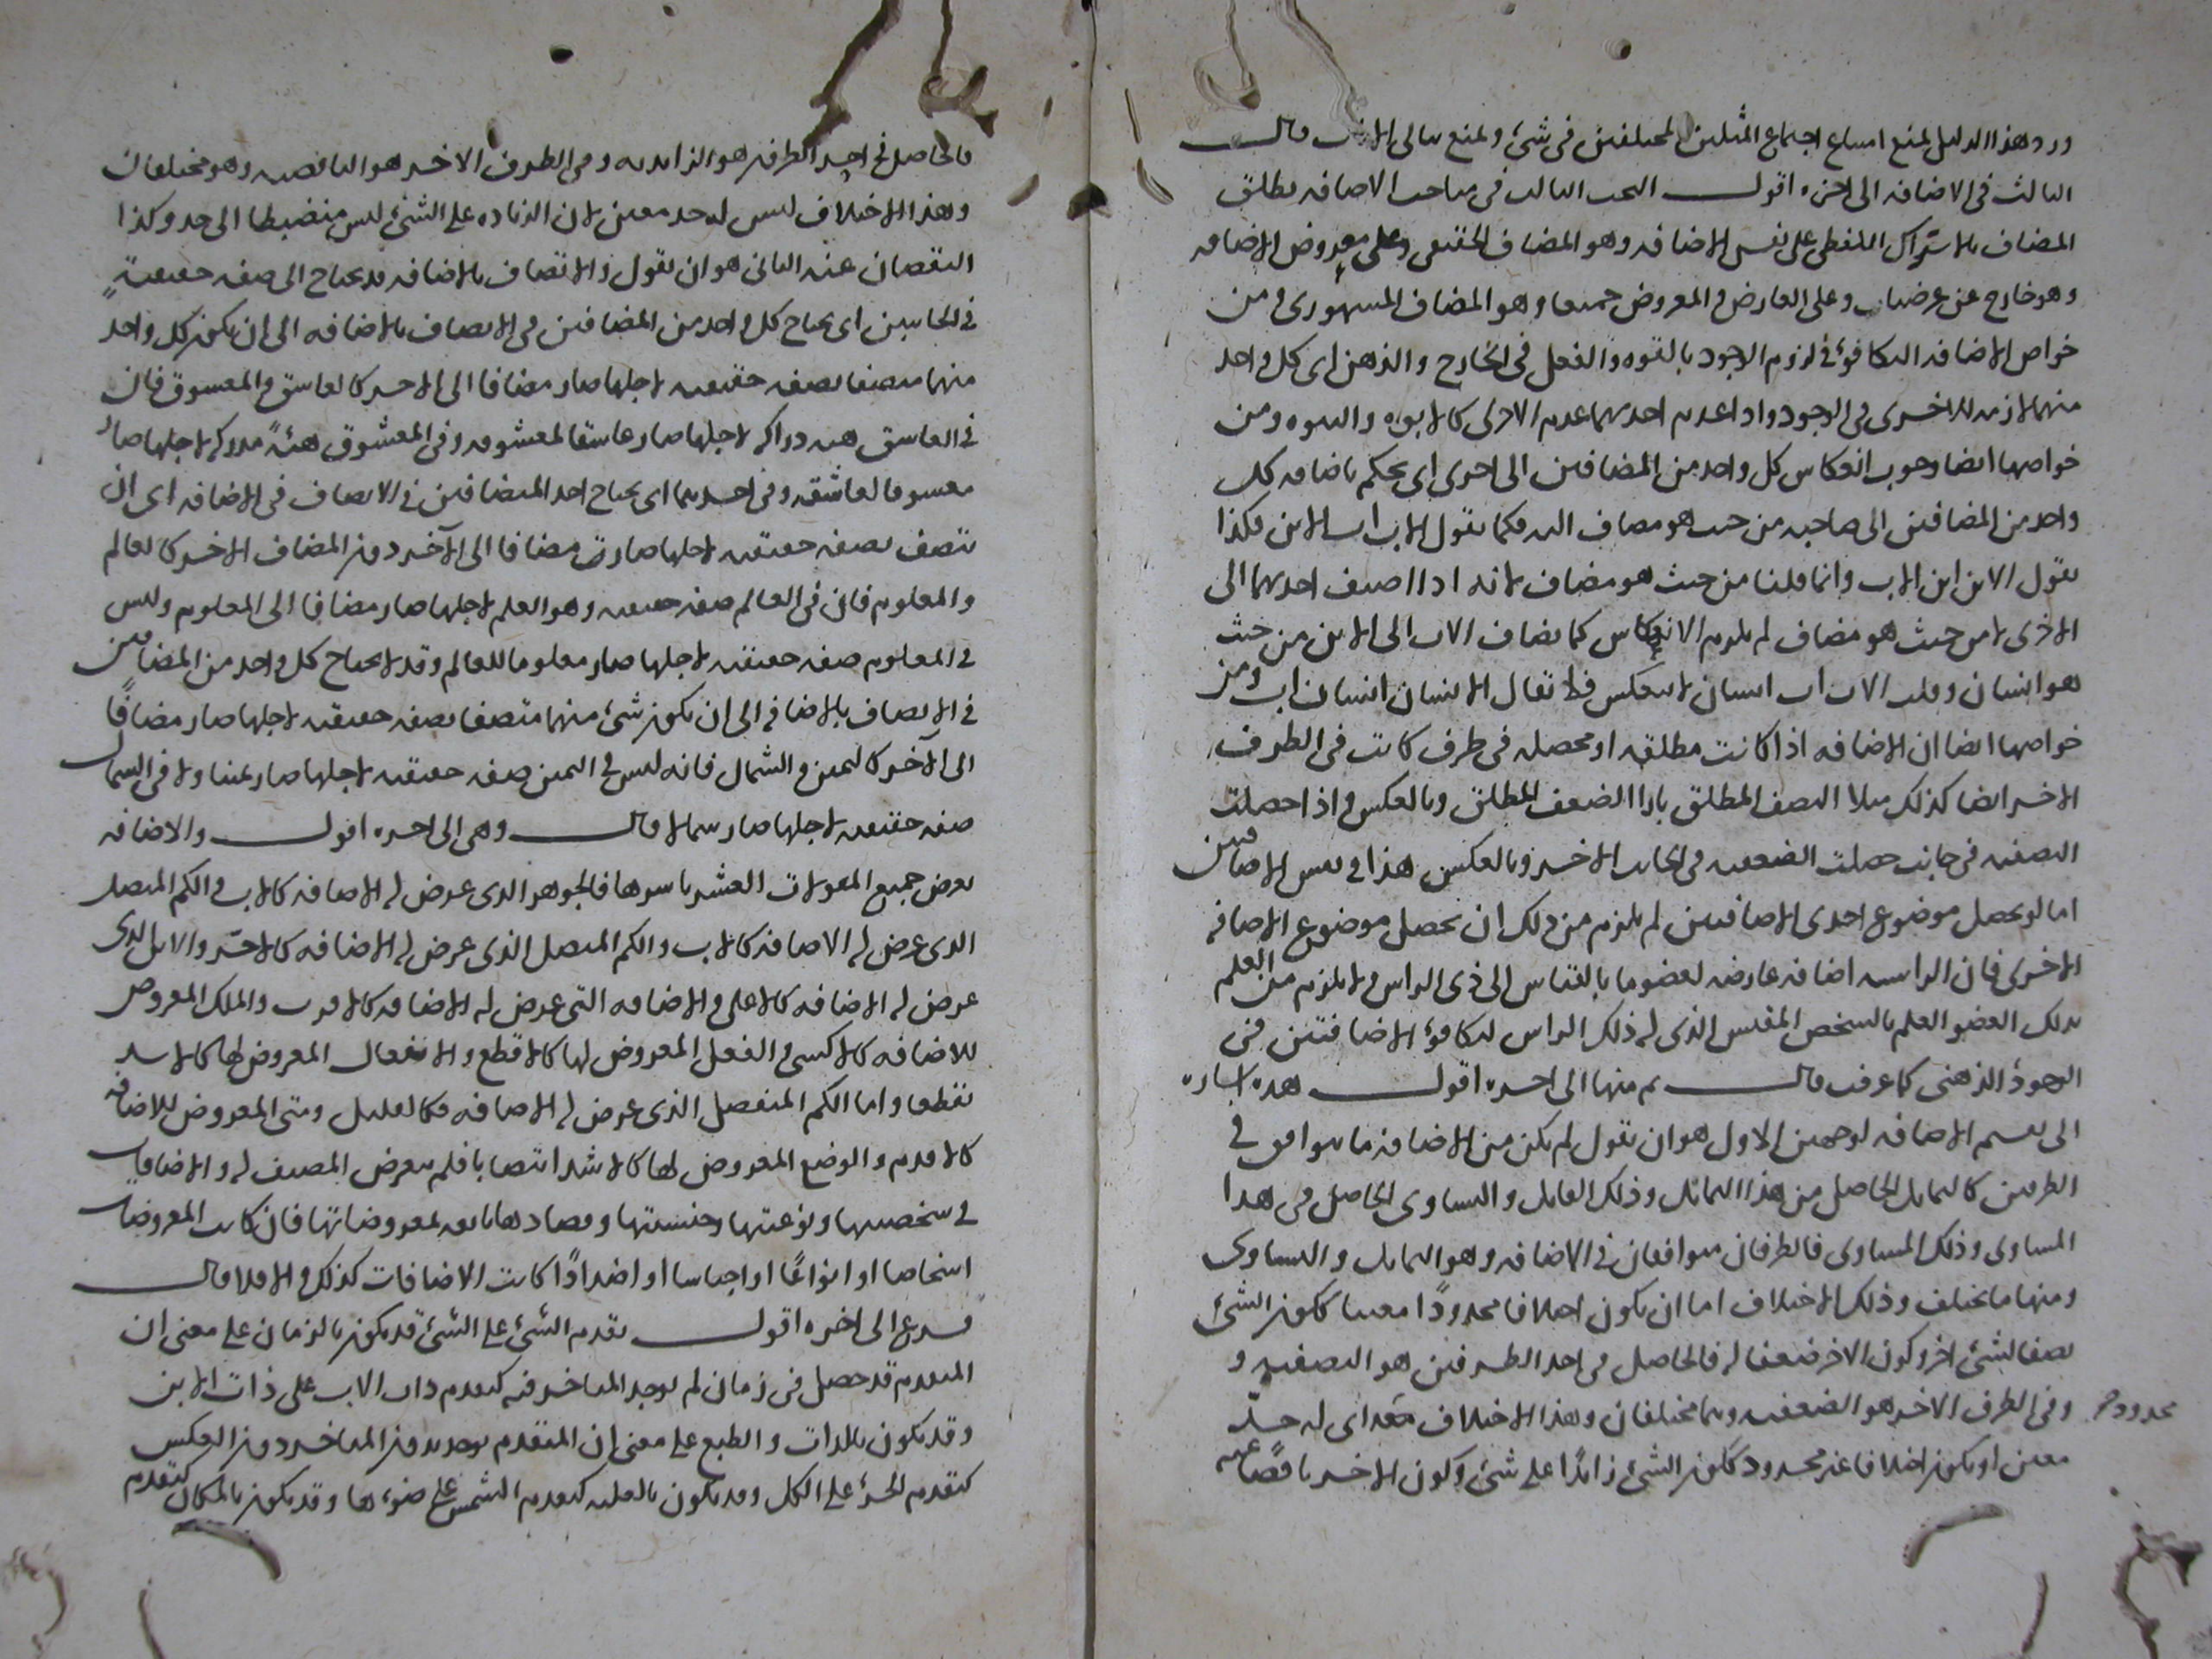 ورد هذا الدليل لمنع امتناع اجتماع المثلين المختلفين في شئ ولمنع تالى قال
الثالث في الاضافه الى اخره اقول البحث الثالث في مباحث الاضافه يطلق
المضاف بالاشتراك اللفظى على نفس الاضافه وهو المضاف الحقيقى وعلى معروض الاضافه
وهو خارج عن وعلى العارض والمعروض جميعا وهو المضاف المشهورى ومن
خواص الاضافه التكافوء في لزوم الوجود بالقوه والفعل في الخارج والذهن اى كل واحد
منهما لازمه للاخرى في الوجود واذا عدم احديهما عدم الاخرى كالابوه والبنوه ومن
خواصها ايضا وجوب انعكاس كل واحد من المضافين الى اخرى اى يحكم باضافه كل
واحد من المضافين الى صاحبه من حيث هو مضاف اليه فكما تقول الاب اب الابن فكذا
تقول الابن ابن الاب وانما قلنا من حيث هو مضاف لانه اذا اضيف احديهما الى
الاخرى لا من حيث هو مضاف لم يلزم الانعكاس كما يضاف الاب الى الابن من حيث
هو انسان وقلت الاب اب انسان لا ينعكس فلا يقال الانسان انسان اب ومن
خواصها ايضا ان الاضافه اذا كانت مطلقه او محصله في طرف كانت في الطرف
الاخر ايضا كذلك مثلا النصف المطلق بازاء الضعف المطلق وبالعكس واذا حصلت
النصفيه في جانب حصلت الضعفيه في الجانب الاخر وبالعكس هذا في نفس الاضافتين
اما لو تحصل موضوع احدى الاضافتين لم يلزم من ذلك ان تحصل موضوع الاضافه
الاخرى فان الراسيه اضافه عارضه لعضو ما بالقياس الى ذى الراس ولا يلزم من العلم
بذلك العضو العلم بالشخص المقيس الذى له ذلك الراس لتكافوء الاضافتين في
الوجود الذهنى كما عرفت قال ثم منها الى اخره اقول هذه اشاره
الى تقسيم الاضافه لوجهين الاول هو ان تقول لم يكن من الاضافه ما يتوافق في
الطرفين كالتماثل الحاصل من هذا المماثل وذلك المماثل والتساوى الحاصل في هذا
المساوى وذلك المساوى فالطرفان متوافقان في الاضافه وهو التماثل والتساوى
ومنها ما يختلف وذلك الاختلاف اما ان يكون اختلافا محدودًا معينا ككون الشئ
نصفا لشئ اخر وكون الاخر ضعفا له فالحاصل في احد الطرفين هو النصفيه و
وفي الطرف الاخر هو الضعفيه وهما مختلفان وهذا الاختلاف اى له حدّ
محدود صح
معين او يكون اختلافا غير محدود ككون الشئ زائدًا على شئ وكون الاخر ناقصًا عنه
فالحاصل في احد الطرفين هو الزايديه وفي الطرف الاخر هو الناقصيه وهو مختلفان
وهذا الاختلاف ليس له حد معين لان الزياده على الشئ ليس منضبطا الى حد وكذا
النقصان عنه الثانى هو ان تقول والاتصاف بالاضافه قد يحتاج الى صفه حقيقيةٍ
في الجانبين اى يحتاج كل واحد من المضافين في الاتصاف بالاضافه الى ان يكون كل واحد
منهما متصفا بصفه حقيقيه لاجلها صار مضافا الى الاخر كالعاشق والمعشوق فان
في العاشق هيه دراكه لاجلها صار عاشقا لمعشوقه وفي المعشوق هئةً مدركه لاجلها صار
معشوقا لعاشقه وفي احديهما اى يحتاج احد المتضافين في الاتصاف في الاضافه اى ان
يتصف بصفه حقيقيه لاجلها صارت مضافا الى الآخر دون المضاف الاخر كالعالم
والمعلوم فان في العالم صفه حقيقيه وهو العلم لاجلها صار مضافا الى المعلوم وليس
في المعلوم صفه حقيقيه لاجلها صار معلوما للعالم وقد لا يحتاج كل واحد من المضافين
في الاتصاف بالاضافه الى ان يكون شئ منهما متصفا بصفه حقيقيه لاجلها صار مضافًا
الى الآخر كاليمين والشمال فانه ليس في اليمين صفه حقيقيه لاجلها صار يمينا ولا في الشمال
صفه حقيقيه لاجلها صار شمالا قال وهى الى اخره اقول والاضافه
تعرض جميع المقولات العشر باسرها فالجوهر الذى عرض له الاضافه كالاب والكم المتصل
الذى عرض له الاضافه كالاب والكم المتصل الذى عرض له الاضافه كالاحرّ والاين الذى
عرض له الاضافه كالاعلى والاضافه التى عرض له الاضافه كالاقرب والملك المعروض
للاضافه كالاكسى والفعل المعروض لها كالاقطع والانفعال المعروض لها كالاشد
تقطعا واما الكم المنفصل الذى عرض له الاضافه فكالقليل ومتى المعروض للاضافه
كالاقدم والوضع المعروض لها كالاشد انتصابا فلم يتعرض المصنف له والاضافات
في شخصيتها ونوعيتها وجنسيتها وتضادها تابعه لمعروضاتها فان كانت المعروضات
اشخاصا او انواعًا او اجناسا او اضدادًا كانت الاضافات كذلك والا فلا قال
فرع الى اخره اقول تقدم الشئ على الشئ قد يكون بالزمان على معنى ان
المتقدم قد حصل في زمان لم يوجد المتاخر فيه كتقدم ذات الاب على ذات الابن
وقد يكون بالذات والطبع على معنى ان المتقدم يوجد بدون المتاخر دون العكس
كتقدم الجزء على الكل وقد يكون بالعليه كتقدم الشمس على ضوءها وقد يكون بالمكان كتقدم